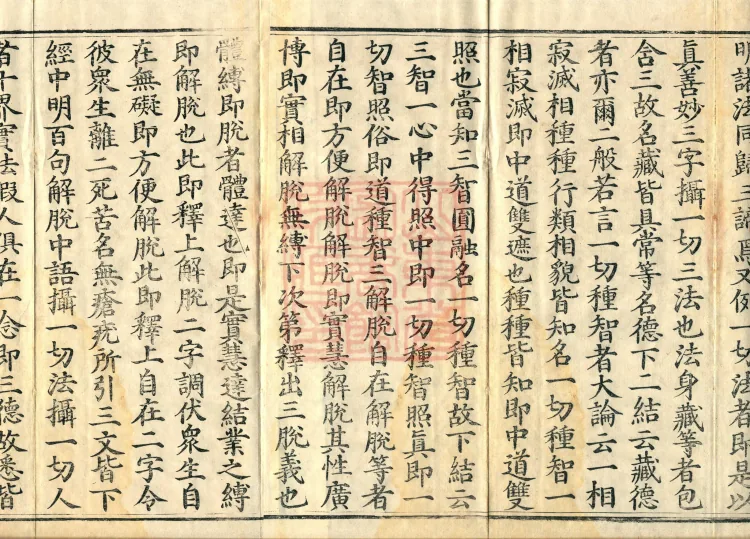 明諸法同歸三諦一切法者即是以
眞善妙三字攝一切三法也法身藏等者包
含三故名藏皆具常等名德下二結云藏德
者亦爾二般若言一切種智者大論云一相
寂滅相種種行類相貌皆知名一切種智一
相寂滅即中道雙遮也種種皆知即中道雙
照也當知三智圓融名一切種智故下結云
三智一心中得照中即一切種智照眞即一
切智照俗即道種智三解脫自在解脫等者
自在即方便解脫解脫即實慧解脫其性廣
博即實相解脫無縛下次第釋出三脫義也
體縛即脫者體達也即是實慧達結業之縛
即解脫也此即釋上解脫二字調伏衆生自
在無礙即方便解脫此即釋上自在二字令
彼衆生離二死苦名無瘡疣所引三文皆下
經中明百句解脫中語攝一切法攝一切人
者十界實法假人俱在一念即三德故悉皆